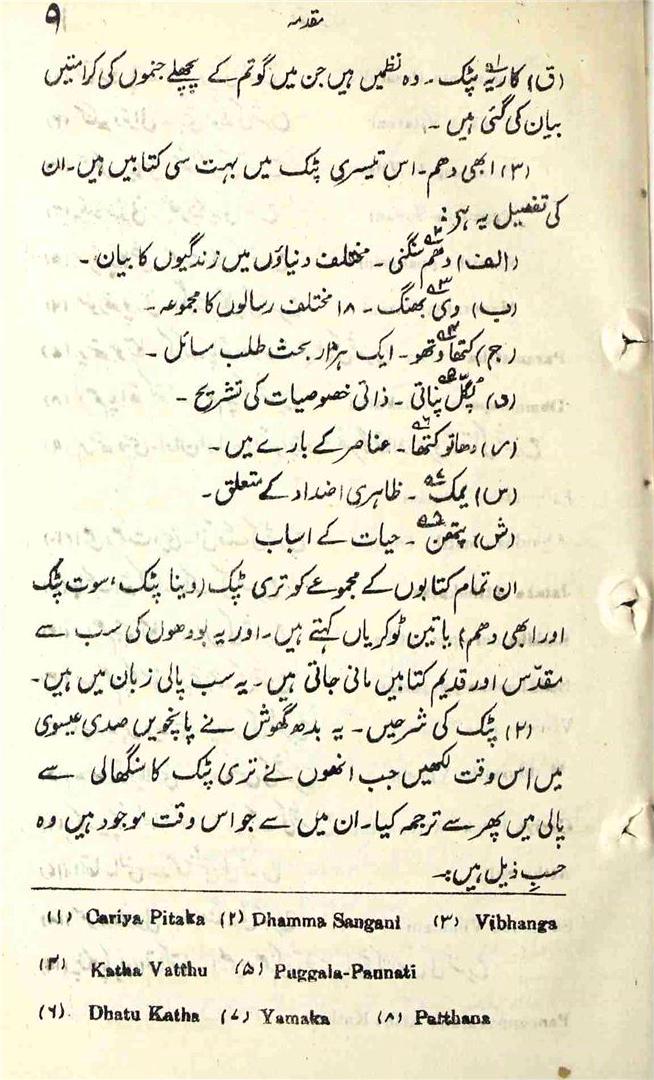 مقدمہ ۹
(ق) کاریہ۱؎ پٹک۔ وہ نظمیں ہیں جن میں گوتم کے پچھلے جنموں کی کرامتیں
بیان کی گئی ہیں۔
(۳) ابھی دھم۔ اس تیسری پٹک میں بہت سی کتابیں ہیں۔ ان
کی تفصیل یہ ہے:
(الف) دھم سنگنی۲؎۔ مختلف دنیاؤں میں زندگیوں کا بیان۔
(ب) وی بھنگ۳؎۔ ۱۸ مختلف رسالوں کا مجموعہ۔
(ج) کتھا وتھو۴؎۔ ایک ہزار بحث طلب مسائل۔
(ق) پُگّل پناتی۵؎۔ ذاتی خصوصیات کی تشریح۔
(ر) دھاتو کتھا۶؎۔ عناصر کے بارے میں۔
(س) یمک۷؎۔ ظاہری اضداد کے متعلق۔
(ش) پتھن۸؎۔ حیات کے اسباب
ان تمام کتابوں کے مجموعے کو تری ٹپک (وینا پٹک، سوت پٹک
اور ابھی دھم) یا تین ٹوکریاں کہتے ہیں۔ اور یہ بودھوں کی سب سے
مقدّس اور قدیم کتابیں مانی جاتی ہیں۔ یہ سب پالی زبان میں ہیں۔
(۲) پٹک کی شرحیں۔ یہ بدھ گھوش نے پانچویں صدی عیسوی
میں اس وقت لکھیں جب انھوں نے تری پٹک کا سنگھالی سے
پالی میں پھر سے ترجمہ کیا۔ ان میں سے جو اس وقت موجود ہیں وہ
حسبِ ذیل ہیں:۔
(۱) Cariya Pitaka (۲) Dhamma Sangani (۳) Vibhanga
(۴) Katha Vatthu (۵) Puggala-Pannati
(۶) Dhatu Katha (۷) Yamaka (۸) Patthana